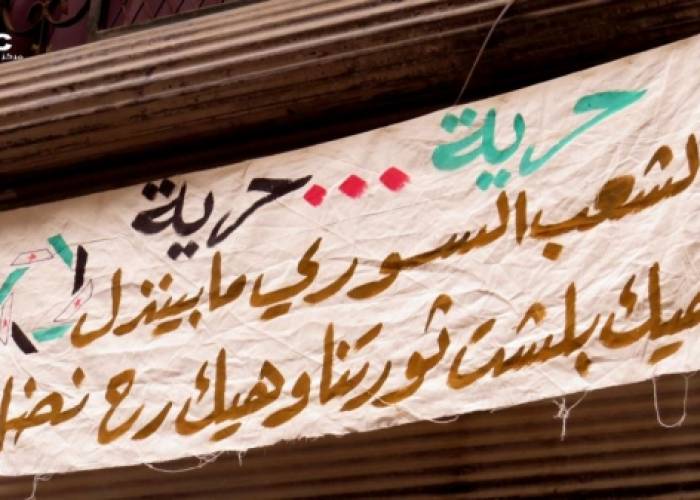 حرية ... حرية
الشعب السوري ما بينذل
هيك بلشت ثورتنا وهيك رح نضل